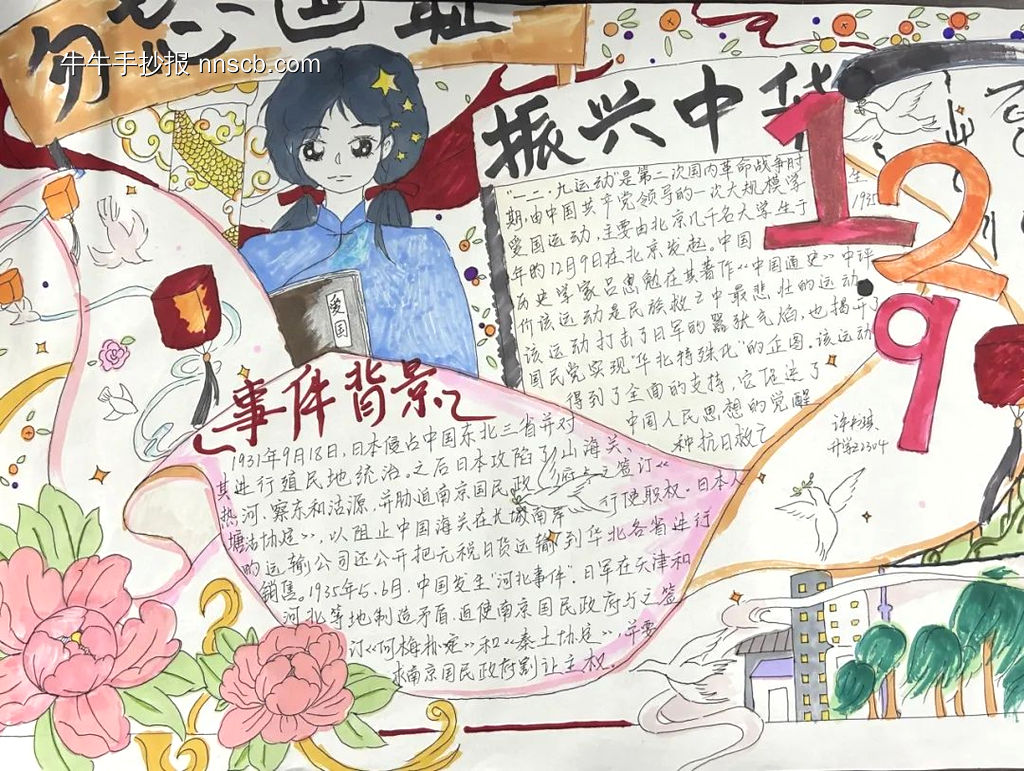 勿忘国耻
牛牛手抄报 nnscb.com
振兴中华
129
爱国
"一二·九运动"是第二次国内革命战争时
期,由中国共产党领导的一次大规模学
生
爱国运动,主要由北京几千名大学生于
1935
年的12月9日在北京发起。中国
历史学家吕思勉在其著作《中国通史》中评
价该运动是民族救亡中最悲壮的运动。
该运动打击了日军的嚣张气焰,也揭开了
国民党实现"华北特殊化"的企图。该运动
得到了全面的支持,它促进了
中国人民思想的觉醒
种抗日救亡
升学2304
事件背景
1931年9月18日,日本侵占中国东北三省并对
其进行殖民地统治。之后日本攻陷了山海关、
热河、察东和沽源,并胁迫南京国民政府与之签订《
塘沽协定》,以阻止中国海关在长城南岸行使职权。日本人
的运输公司还公开把无税日货运输到华北各省进行
销售。1935年5、6月,中国发生"河北事件",日军在天津和
河北等地制造矛盾,迫使南京国民政府与之签
订《何梅协定》和《秦土协定》,并要
求南京国民政府割让主权。